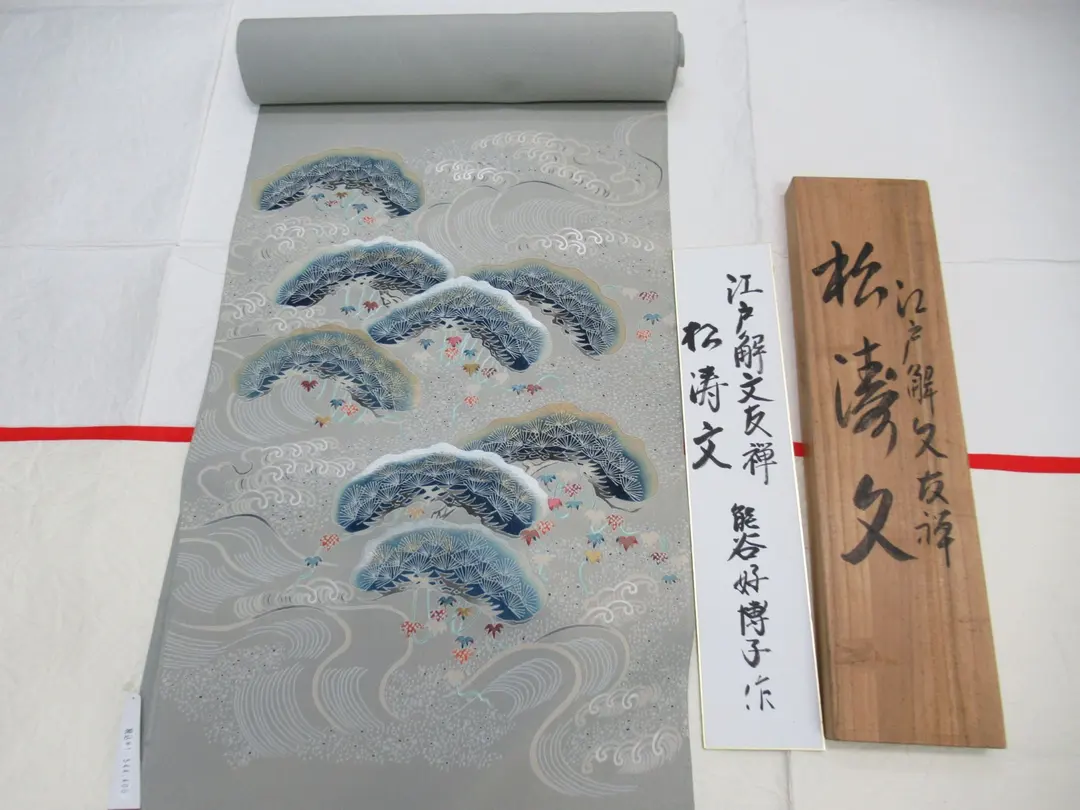 江戸解文友禅 熊谷好博子 作
松涛文
江戸解文友禅
松涛文